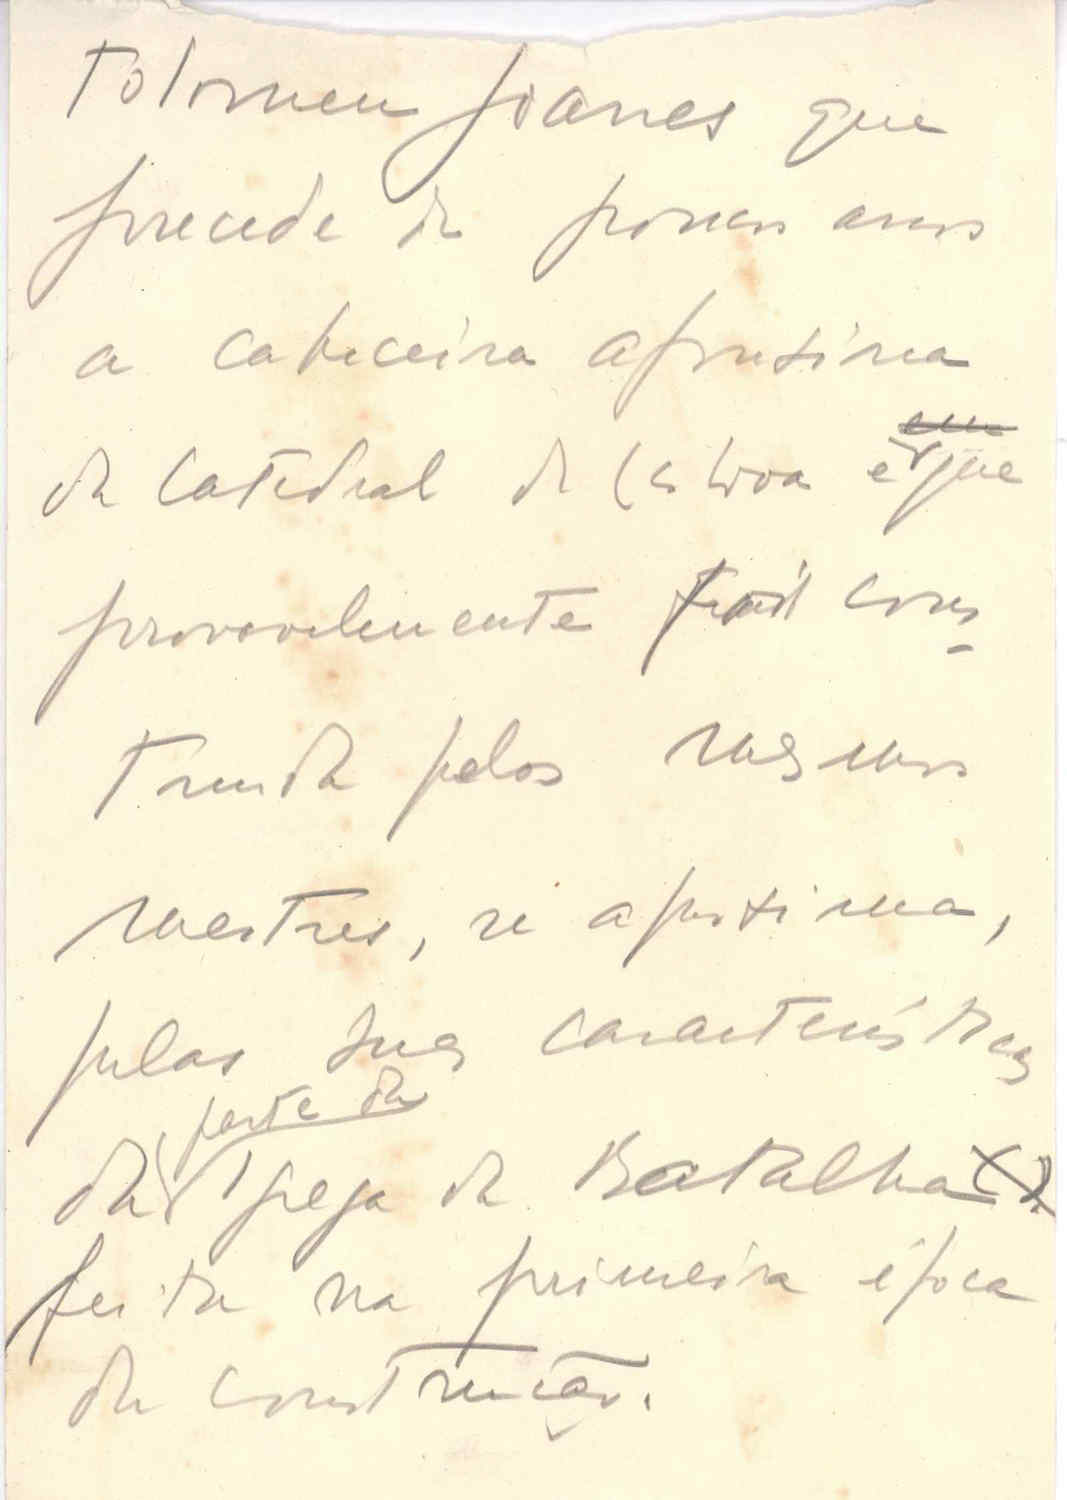 tolomeu Joanes que
precede de poucos anos
a cabeceira aproxima
da catedral de Lisboa e que
provavelmente foi cons-
truida pelos mesmos
mestres, se aproxima,
pelas suas características
parte da
da Igreja da Batalha
feita na primeira época
da construção.